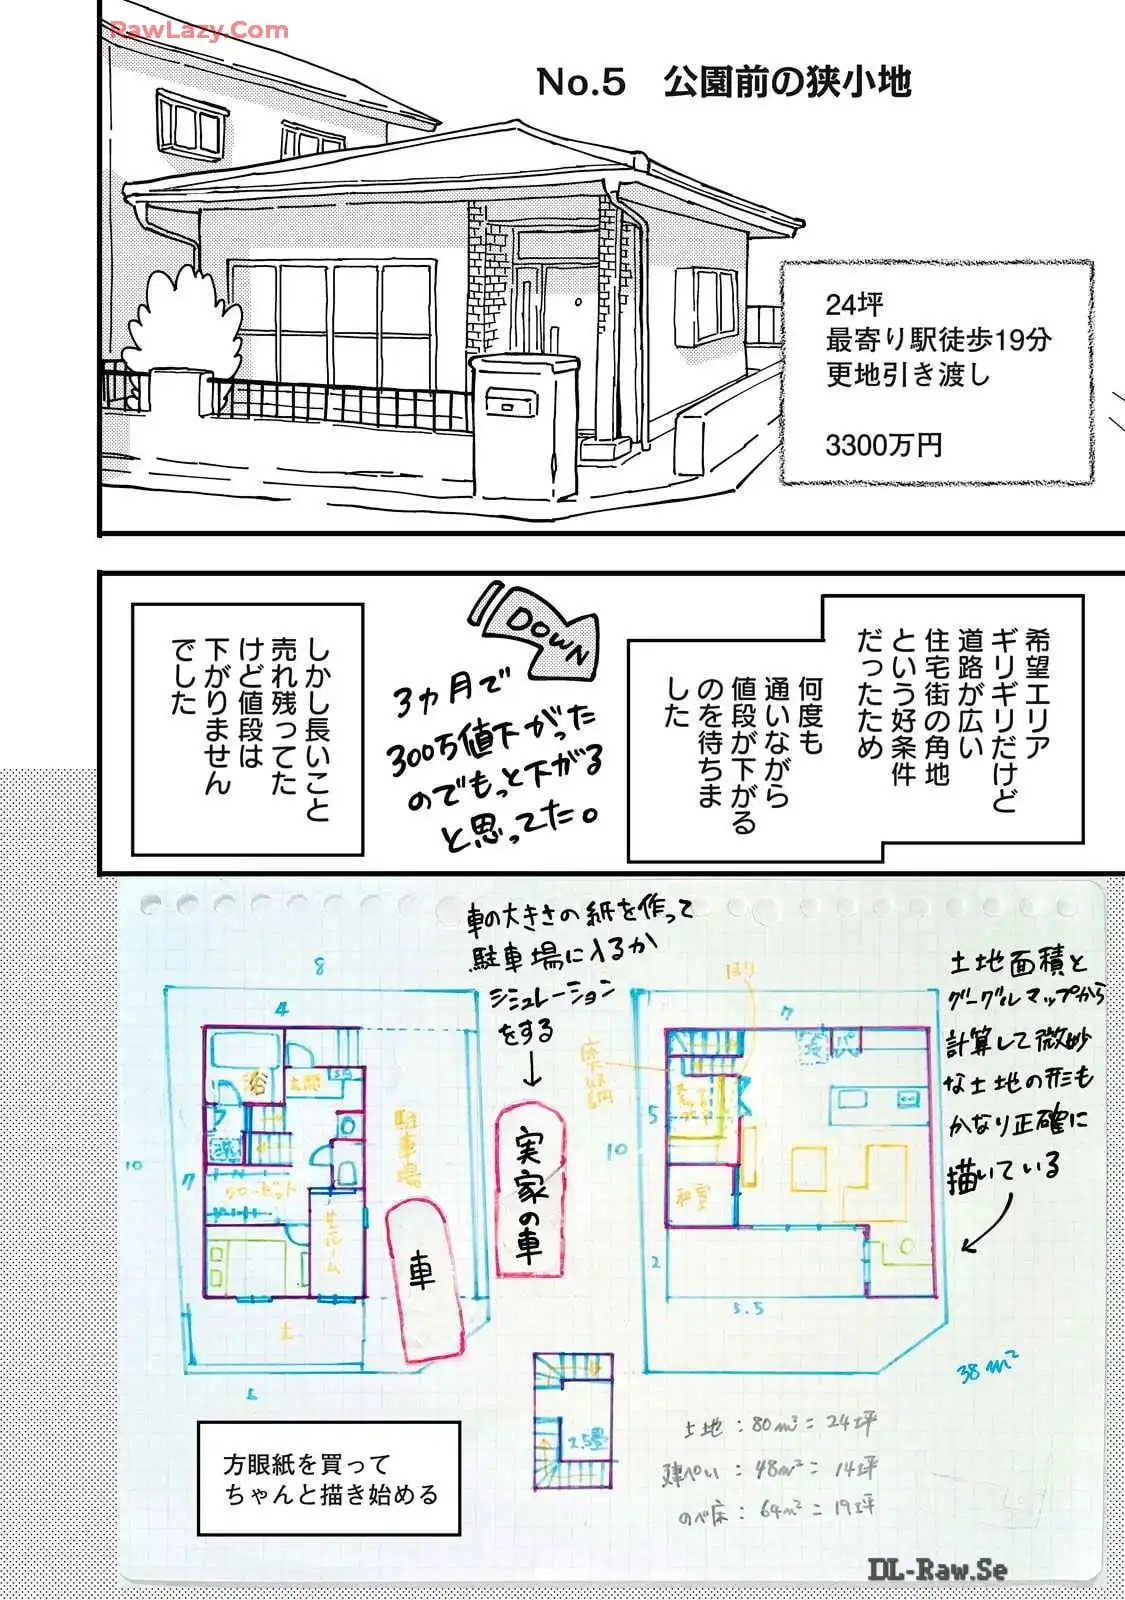 RawLazy.Com
No.5　公園前の狭小地
24坪
最寄り駅徒歩19分
更地引き渡し
3300万円
希望エリア
ギリギリだけど
道路が広い
住宅街の角地
という好条件
だったため
何度も
通いながら
値段が下がる
のを待ちま
した
DOWN
3ヵ月で
300万値下がった
のでもっと下がる
と思ってた。
しかし長いこと
売れ残ってた
けど値段は
下がりません
でした
車の大きさの紙を作って
駐車場に入るか
シミュレーション
をする
土地面積と
グーグルマップから
計算して微妙
な土地の形も
かなり正確に
描いている
8
4
浴
玄関
洗
クローゼット
駐車場
10
7
車
実家の車
土
5
7
パ
5
10
和室
2
5.5
38m²
2.5畳
土地：80m²＝24坪
建ぺい：48m²＝14坪
のべ床：64m²＝19坪
方眼紙を買って
ちゃんと描き始める
DL-Raw.Se